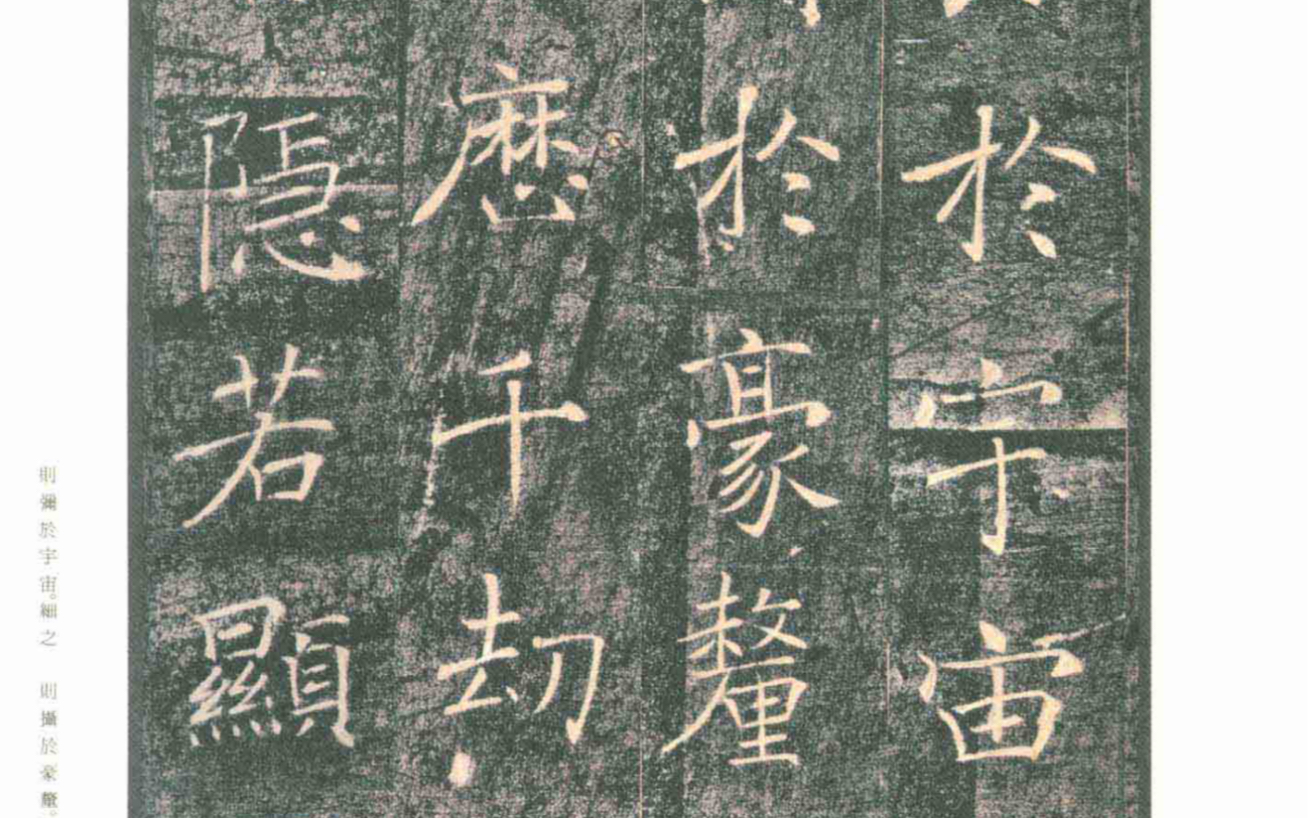 於宇宙
於豪釐
歷千劫
隱若顯
則彌於宇宙。細之 則攝於豪釐。